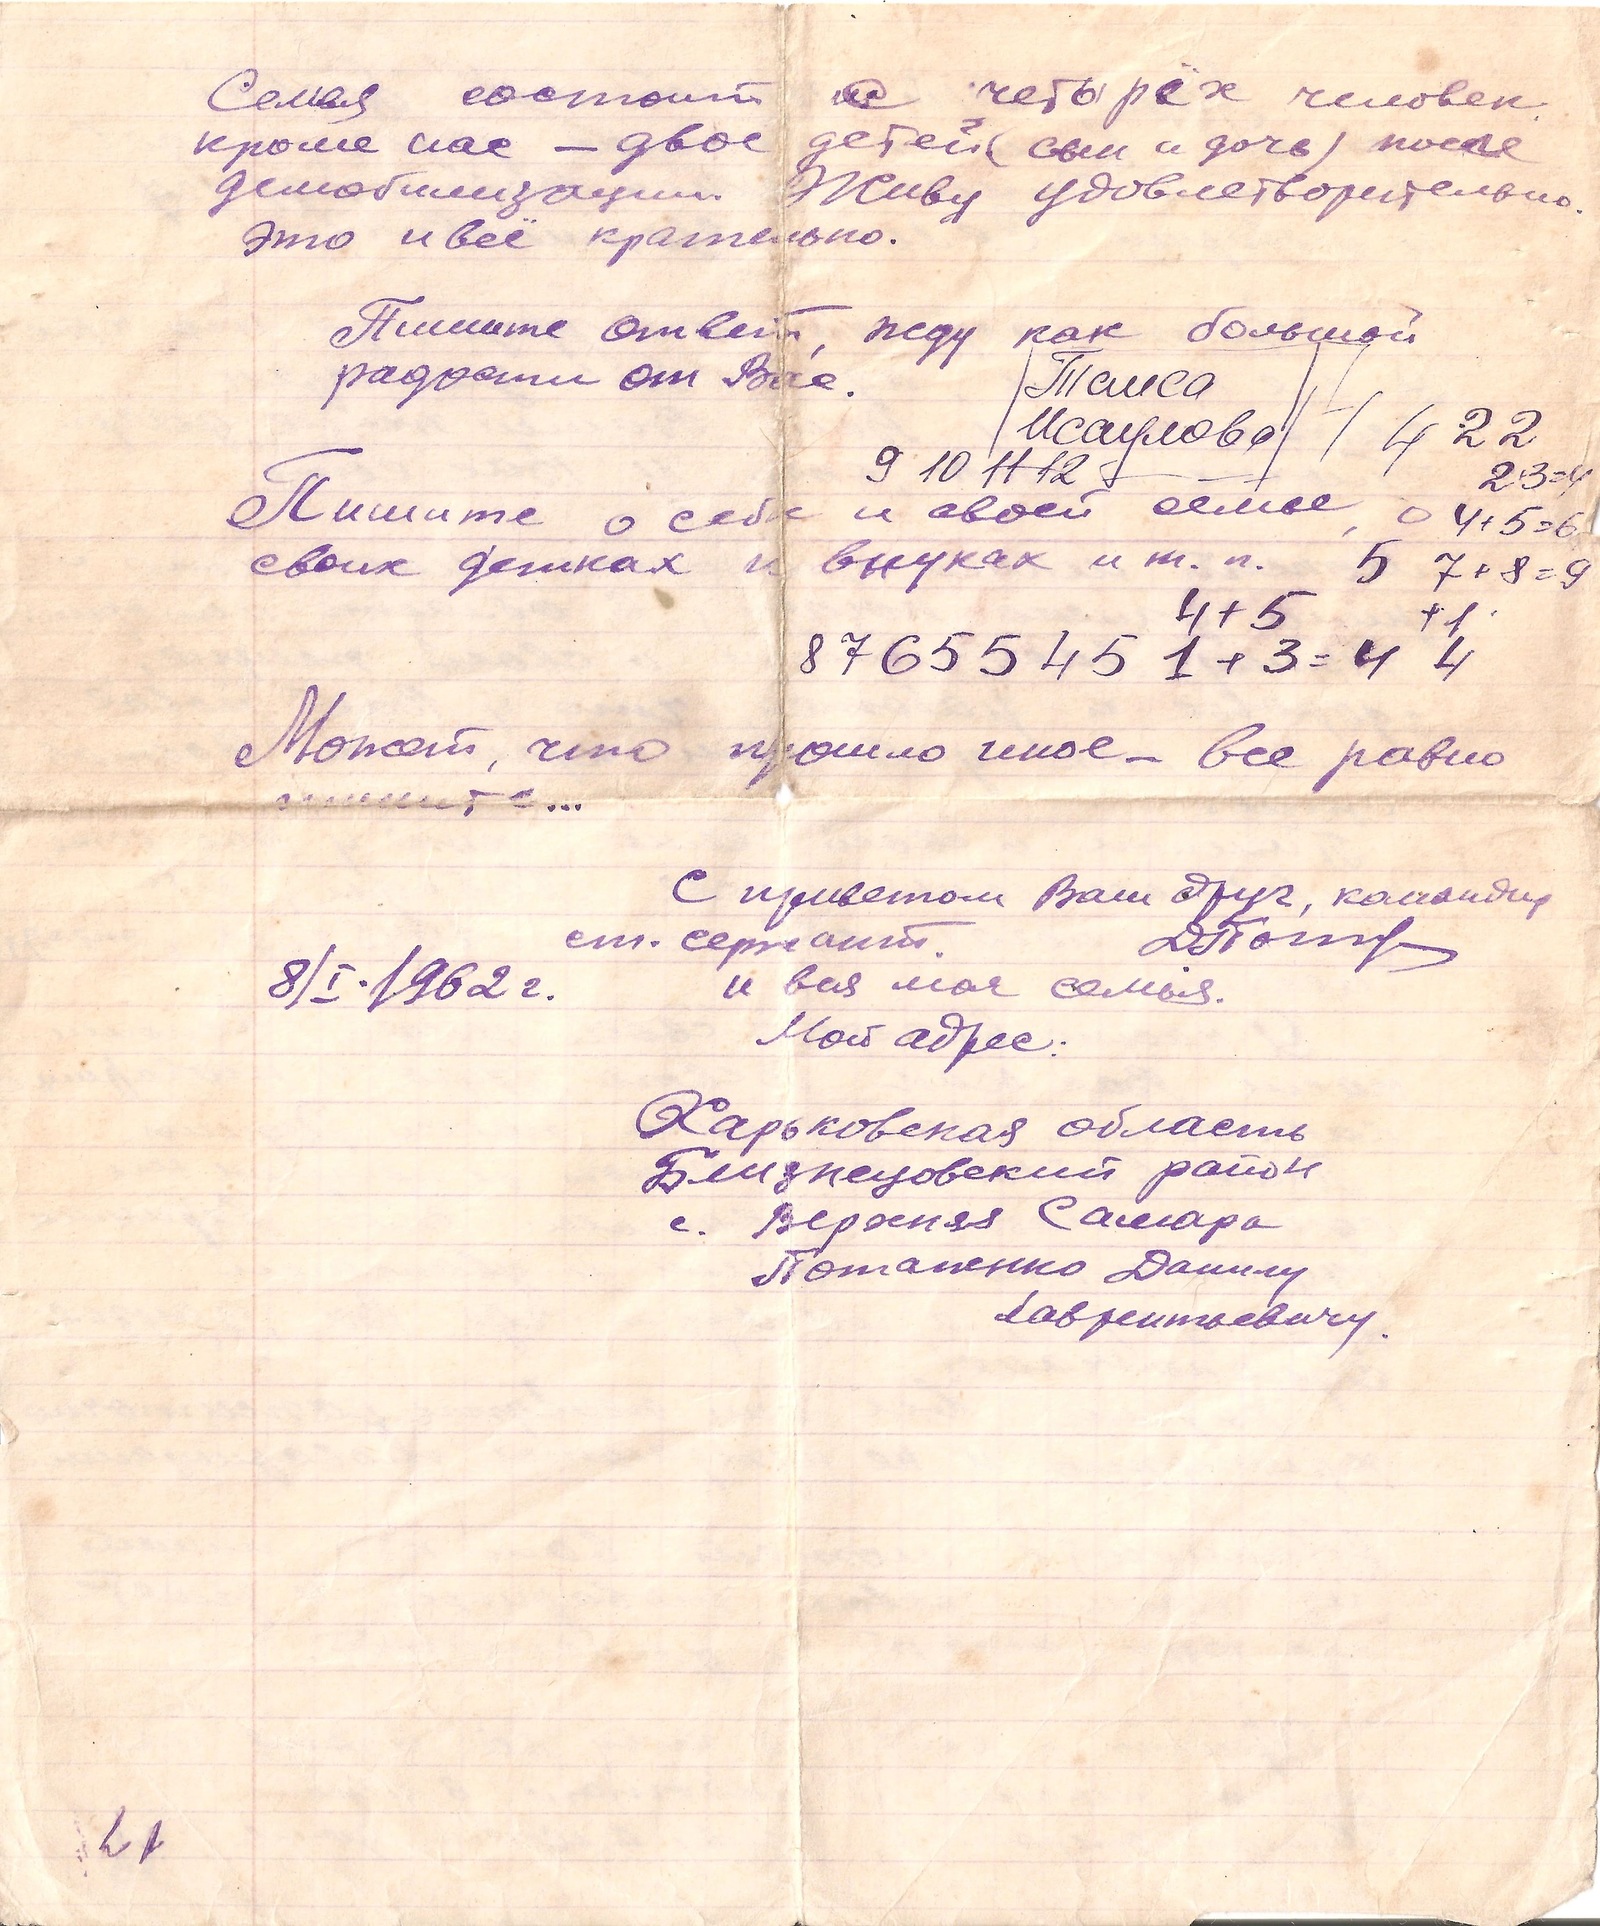 Семья состоит из четырёх человек.
кроме нас – двое детей (сын и дочь) после
демобилизации. Живу удовлетворительно.
Это и всё кратенько.
Пишите ответ, жду как большой
радости от Вас.
Таиса
Исаулова 4 22
9 10 11 12 2 3=4
Пишите о себе и своей семье, о 4+5=6
своих детках и внуках и т. п. 5 7+8=9
4+5 +1
8 7 6 5 5 4 5 1+3=4 4
Может, что прошло иное – все равно
пишите...
С приветом Ваш друг, командир
ст. сержант.
8/I.1962 г. и вся моя семья.
Мой адрес:
Харьковская область
Близнецовский район
с. Верхняя Самара
Потапенко Данилу
Лаврентьевичу.